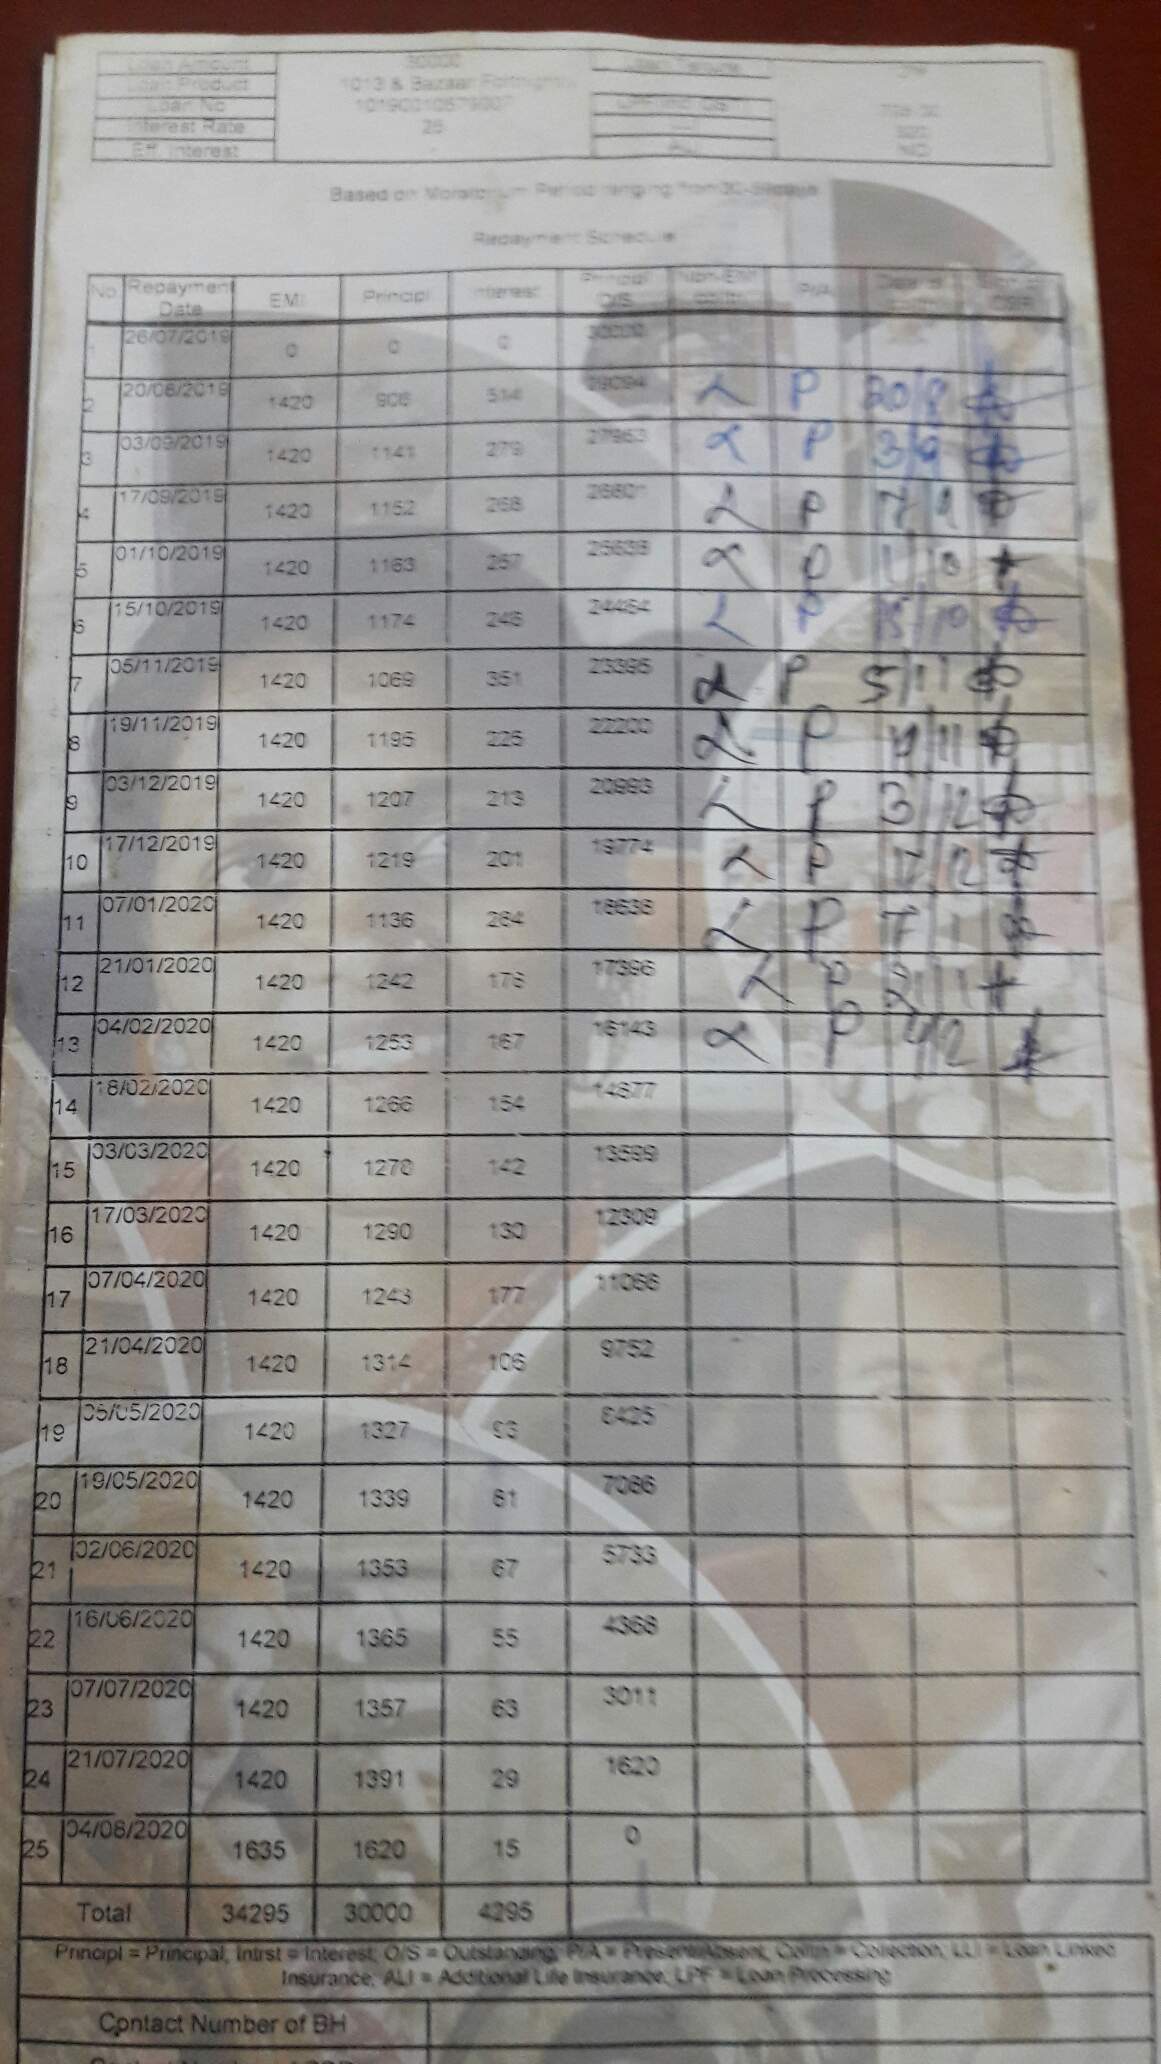 Loan Amount 30000
Loan Product 1013 & Bazaar Fortnightly
Loan No
Interest Rate 26
Eff. Interest -
NO
Based on Moratorium Period ranging from
Repayment Schedule
No Repayment Date EMI Principl Interest Principl O/S P/A
1 26/07/2019 0 0 0 30000
2 20/08/2019 1420 906 514 29094 P 20/8
3 03/09/2019 1420 1141 279 27953 P 3/9
4 17/09/2019 1420 1152 268 26801 P
5 01/10/2019 1420 1163 257 25638 P 1/10
6 15/10/2019 1420 1174 246 24464 P 15/10
7 05/11/2019 1420 1069 351 23395 P 5/11
8 19/11/2019 1420 1195 225 22200 P 19/11
9 03/12/2019 1420 1207 213 20993 P 3/12
10 17/12/2019 1420 1219 201 19774 P 17/12
11 07/01/2020 1420 1136 284 18638 P 7/1
12 21/01/2020 1420 1242 178 17396 P 21/1
13 04/02/2020 1420 1253 167 16143 P 4/2
14 18/02/2020 1420 1266 154 14877
15 03/03/2020 1420 1278 142 13599
16 17/03/2020 1420 1290 130 12309
17 07/04/2020 1420 1243 177 11066
18 21/04/2020 1420 1314 106 9752
19 05/05/2020 1420 1327 93 8425
20 19/05/2020 1420 1339 81 7086
21 02/06/2020 1420 1353 67 5733
22 16/06/2020 1420 1365 55 4368
23 07/07/2020 1420 1357 63 3011
24 21/07/2020 1420 1391 29 1620
25 04/08/2020 1635 1620 15 0
Total 34295 30000 4295
Principl = Principal, Intrst = Interest, O/S = Outstanding, P/A = Present/Absent, Colltn = Collection, LLI = Loan Linked
Insurance, ALI = Additional Life Insurance, LPF = Loan Processing
Contact Number of BH